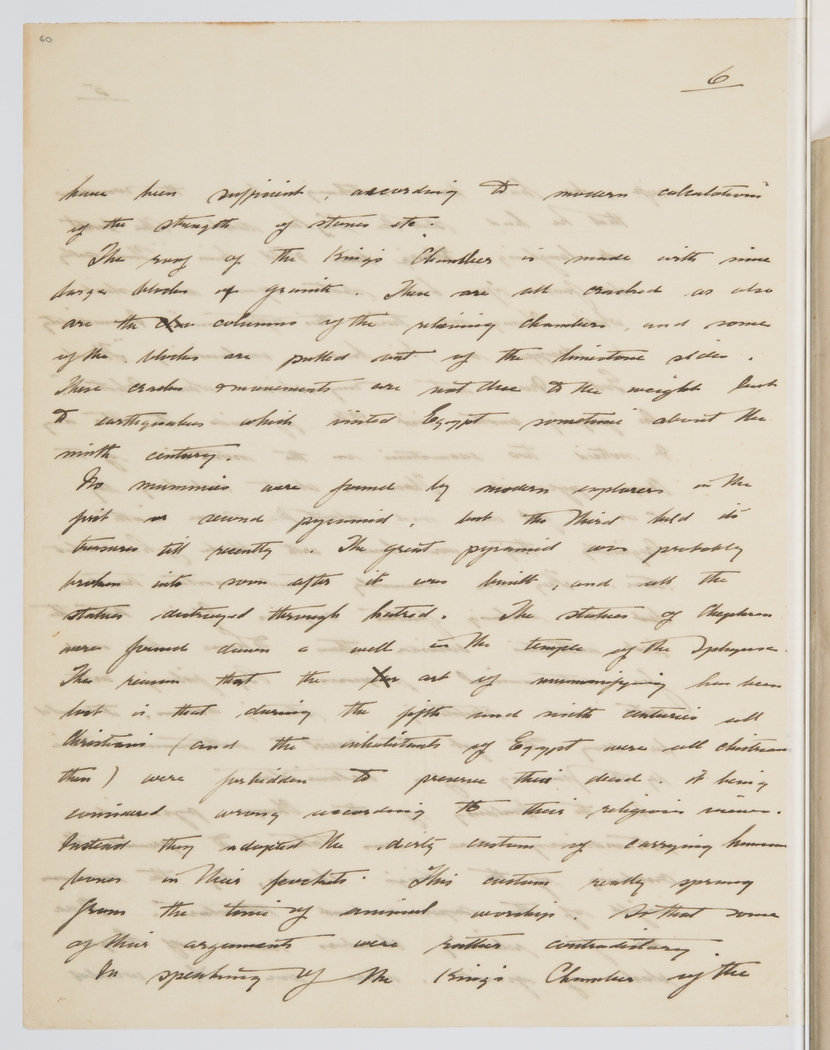 60
6
have been sufficient, according to modern calculations
of the strength of stones etc.
The roof of the King's Chamber is made with nine
large blocks of granite. These are all cracked as also
are the columns of the relieving chambers, and some
of the blocks are pulled out of the limestone sides.
These cracks & movements are not due to the weight but
to earthquakes which visited Egypt sometime about the
ninth century.
No mummies were found by modern explorers in the
first or second pyramid, but the third held its
treasures till recently. The great pyramid was probably
broken into soon after it was built, and all the
statues destroyed through hatred. The statues of Chephren
were found down a well in the temple of the Sphynx.
The reason that the art of mummifying has been
lost is that during the fifth and ninth centuries all
Christians (and the inhabitants of Egypt were all christians
then) were forbidden to preserve their dead. it being
considered wrong according to their religious views.
Instead they adopted the dirty custom of carrying human
bones in their pockets. This custom really sprang
from the time of animal worship. So that some
of their arguments were rather contradictory.
In speaking of the King's Chamber of the